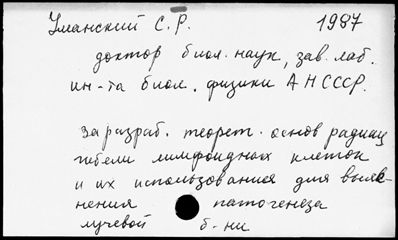 Уманский С.Р. 1987
доктор биол. наук, зав. лаб.
ин-та биол. физики АНСССР.
За разраб. теорет. основ радиац
гибели лимфоидных клеток
и их использования для выяв-
нения патогенеза
лучевой б-ни